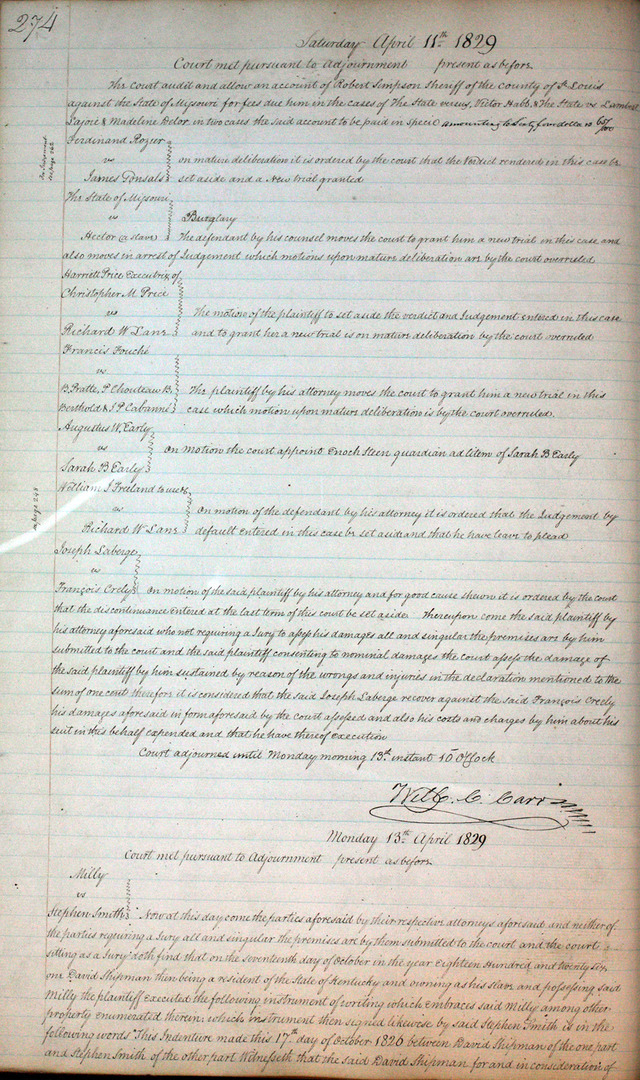 274
Saturday April 11th 1829
Court met pursuant to adjournment present as before
The Court audit and allow an account of Robert Simpson Sheriff of the county of St Louis
against the State of Missouri for fees due him in the cases of The State versus Victor Habb & The State vs Lambert
Lajoie & Madeline Delor in two cases the said account to be paid in specie amounting to Sixty four dollars 65/100
Ferdinand Rozier
vs on mature deliberation it is ordered by the court that the verdict rendered in this case be
James Tonsals set aside and a New trial granted
The State of Missouri
vs Burglary
Hector (a slave) The defendant by his counsel moves the court to grant him a new trial in this case and
also moves in arrest of Judgement which motions upon mature deliberation are by the court overruled
Harriett Price Executrix of
Christopher M Price
vs The motion of the plaintiff to set aside the verdict and Judgement entered in this case
Richard W Lane and to grant her a new trial is on mature deliberation by the court overruled
Francis Fouché
vs
B. Pratte, P Chouteau B. The plaintiff by his attorney moves the court to grant him a new trial in this
Berthold & J P Cabanne case which motion upon mature deliberation is by the court overruled.
Augustus W. Early
vs on motion the court appoint Enoch Steen guardian ad litem of Sarah B Early
Sarah B Early
William J Freeland to use &c
vs on motion of the defendant by his attorney it is ordered that the Judgement by
Richard W Lane default entered in this case be set aside and that he have leave to plead
Joseph Laberge
vs
François Crely on motion of the said plaintiff by his attorney and for good cause shewn it is ordered by the court
that the discontinuance entered at the last term of this court be set aside. Thereupon come the said plaintiff by
his attorney aforesaid who not requiring a Jury to assess his damages all and singular the premises are by him
submitted to the court and the said plaintiff consenting to nominal damages the court assess the damage of
the said plaintiff by him sustained by reason of the wrongs and injuries in the declaration mentioned to the
sum of one cent therefore it is considered that the said Joseph Laberge recover against the said François Creely
his damages aforesaid in form aforesaid by the court assessed and also his costs and charges by him about his
suit in this behalf expended and that he have thereof execution
Court adjourned until Monday morning 13th instant 10 O'Clock
Will. C. Carr
Monday 13th April 1829
Court met pursuant to Adjournment present as before
Milly
vs
Stephen Smith Now at this day come the parties aforesaid by their respective attorneys aforesaid and neither of
the parties requiring a Jury all and singular the premises are by them submitted to the court and the court
sitting as a Jury doth find that on the seventeenth day of October in the year Eighteen Hundred and twenty six
one David Shipman then being a resident of the State of Kentucky and owning as his slave and possessing said
Milly the plaintiff executed the following instrument of writing which embraces said Milly among other
property enumerated therein: which instrument then signed likewise by said Stephen Smith is in the
following words "This Indenture made this 17th day of October 1826 between David Shipman of the one part
and Stephen Smith of the other part Witnesseth that the said David Shipman for and in consideration of